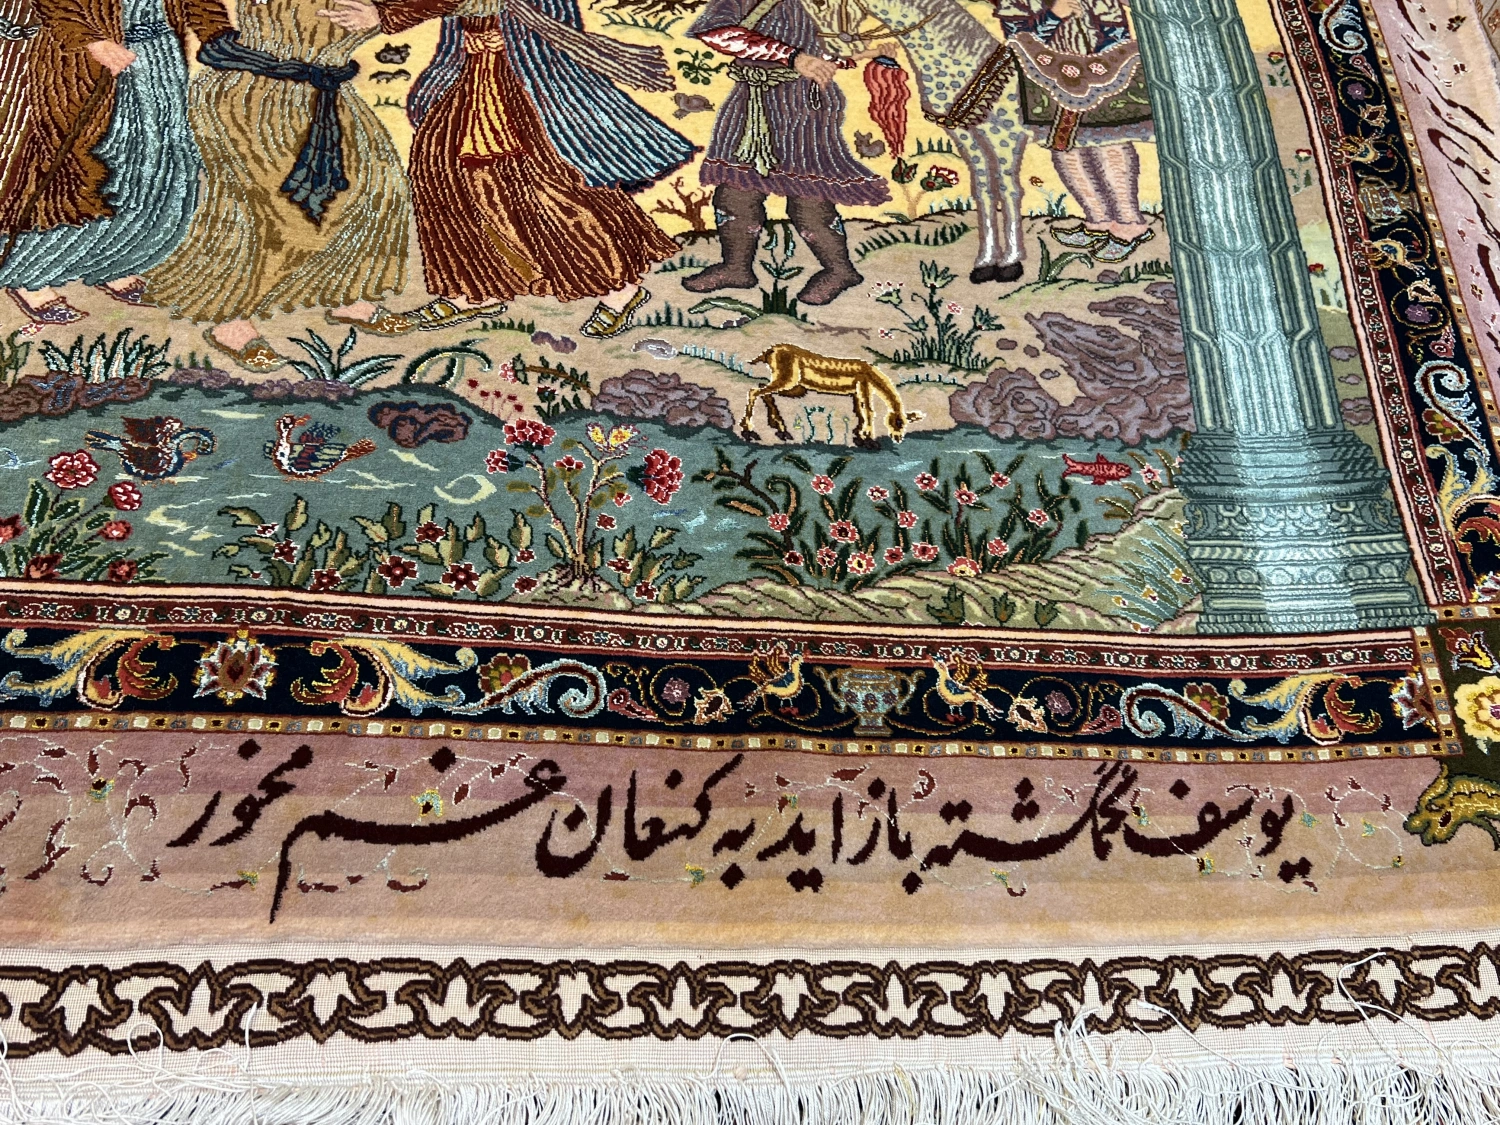 یوسف گمگشته باز اید به کنعان غم مخور